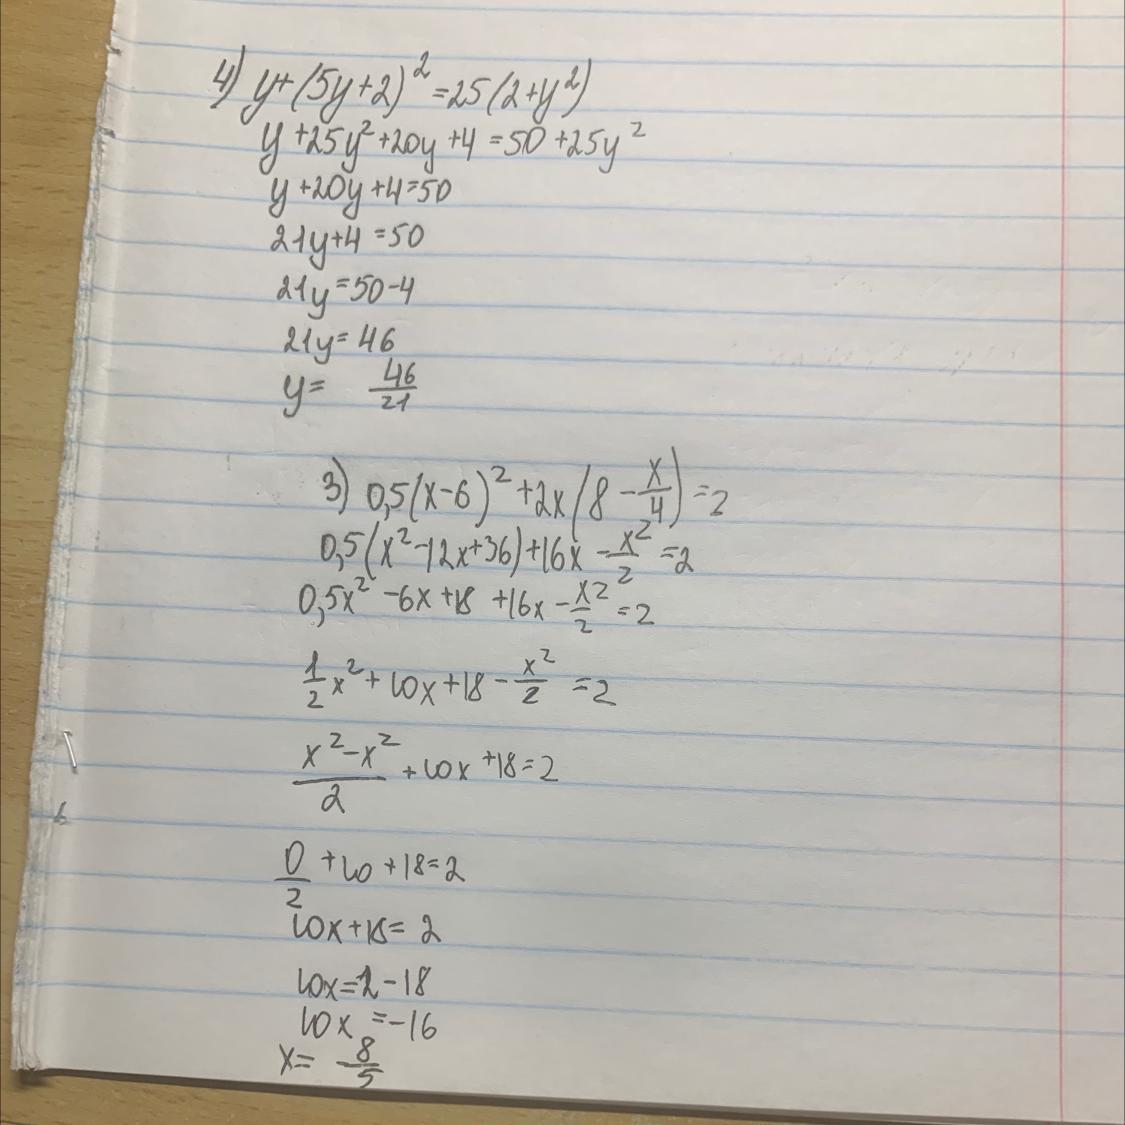 4) y+(5y+2)²=25(2+y²)
y+25y²+20y+4=50+25y²
y+20y+4=50
21y+4=50
21y=50-4
21y=46
y= 46/21
3) 0,5(x-6)²+2x(8-x/4)=2
0,5(x²-12x+36)+16x-x²/2=2
0,5x²-6x+18+16x-x²/2=2
1/2x²+10x+18-x²/2=2
(x²-x²)/2+10x+18=2
0/2+10+18=2
10x+18=2
10x=2-18
10x=-16
x=-8/5